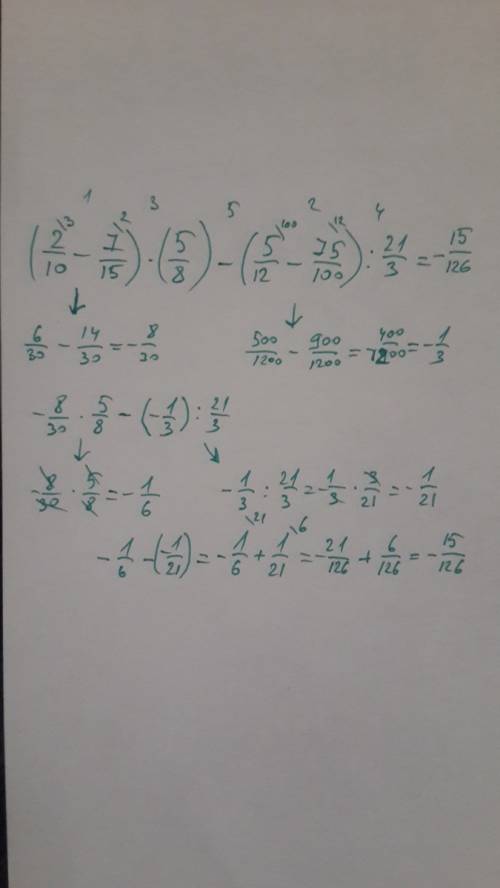 1 3 5 2 4
(2\3/10 - 7\2/15) · (5/8) - (5\100/12 - 75\12/100) : 21/3 = -15/126
↓ ↓
6/30 - 14/30 = -8/30 500/1200 - 900/1200 = -400/1200 = -1/3
-8/30 · 5/8 - (-1/3) : 21/3
↓ ↘
-8/30 · 5/8 = -1/6 -1/3 : 21/3 = -1/3 · 3/21 = -1/21
-1/6 - (-1/21) = -1\21/6 + 1\6/21 = -21/126 + 6/126 = -15/126